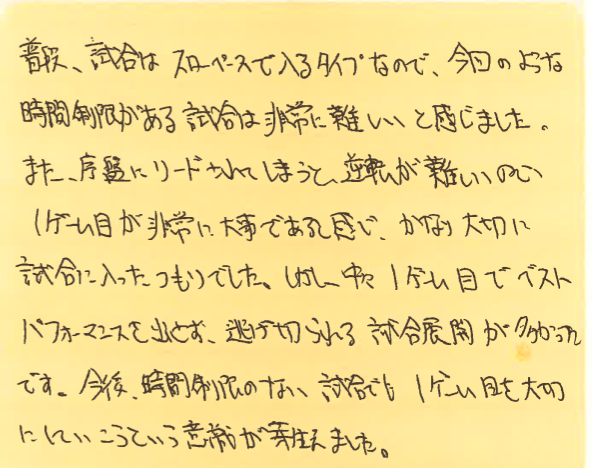 普段、試合は スローペースで入るタイプなので、今回のような
時間制限がある試合は非常に難しい、と感じました。
また、序盤にリードされてしまうと、逆転が難しいので
1ゲーム目が非常に大事であると感じ、かなり大切に
試合に入ったつもりでした。しかし、中々1ゲーム目でベスト
パフォーマンスを出せず、逃げ切られる試合展開が多かった
です。今後、時間制限のない試合でも1ゲーム目を大切
にしていこうという意識が芽生えました。